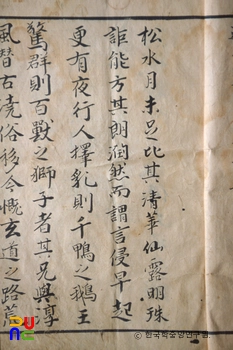 松水月未足比其清華仙露明珠
詎能方其朗潤然而謂言侵早起
更有夜行人擇乳則千鴨之鵝王
驚群則百獸之獅子者其兄與淳
風替古澆俗移今慨玄道之路荒
ⓒ 한국학중앙연구원